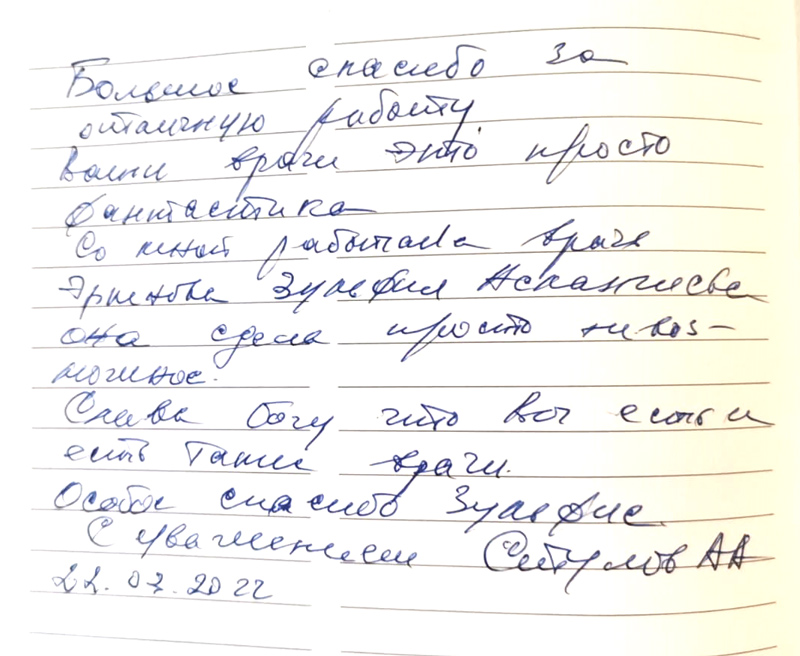 Большое спасибо за
отличную работу
Ваши врачи это просто
фантастика
Со мной работала врач
Зульфия
она сдела просто невоз-
можное.
Слава богу что вы есть и
есть такие врачи.
Особое спасибо Зульфие.
С уважением АА
22.07.2022